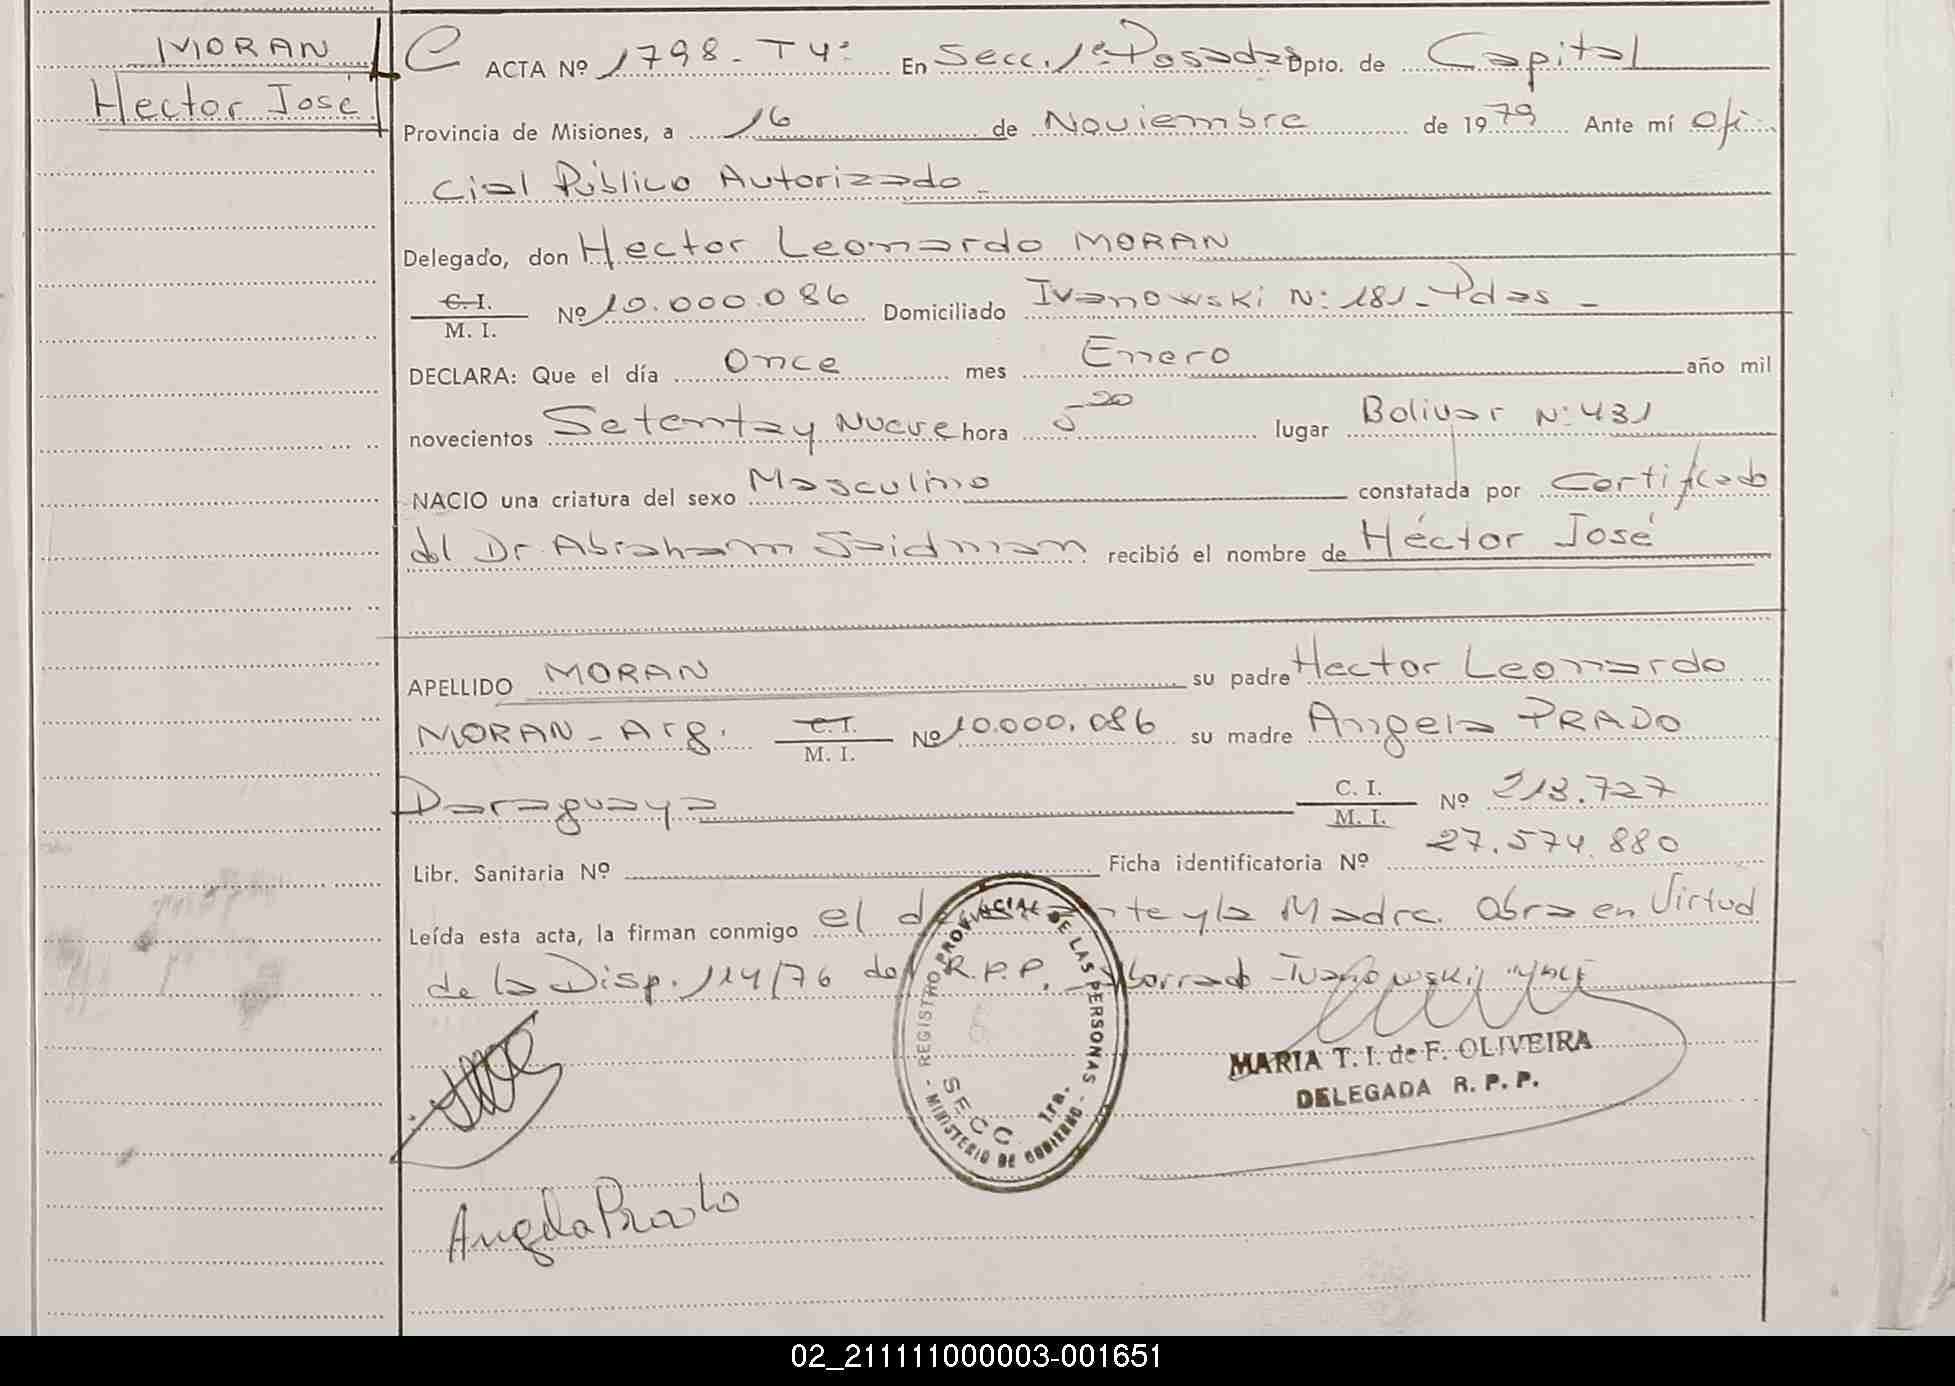 MORAN
Hector José
C ACTA Nº 1798 - T4º En Secc. 1ª Posadas Dpto. de Capital
Provincia de Misiones, a 16 de Noviembre de 1979 Ante mí Ofi
cial Público Autorizado -
Delegado, don Hector Leonardo MORAN
C. I.
M. I.
Nº 10.000.086 Domiciliado Ivanowski Nº 181 - Pdas -
DECLARA: Que el día Once mes Enero año mil
novecientos Setenta y Nueve hora 5 20 lugar Bolivar Nº 431
NACIO una criatura del sexo Masculino constatada por Certificado
del Dr. Abraham Saidman recibió el nombre de Héctor José
APELLIDO MORAN su padre Hector Leonardo
MORAN - Arg. C. I. M. I. Nº 10.000.086 su madre Angela PRADO
Paraguaya C. I. M. I. Nº 213.727
Libr. Sanitaria Nº Ficha identificatoria Nº 27.574.880
Leída esta acta, la firman conmigo el declarante y la Madre. Obra en Virtud
de la Disp. 114/76 del R.P.P. Borrado Ivanowski Vale
REGISTRO PROVINCIAL DE LAS PERSONAS
- MINISTERIO DE GOBIERNO -
SECC. 1ra.
MARIA T. I. de F. OLIVEIRA
DELEGADA R. P. P.
Angela Prado
02_211111000003-001651